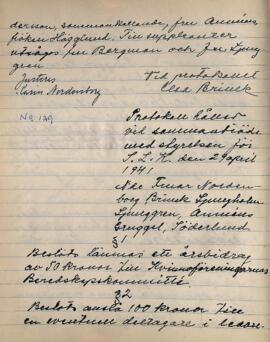 derson, sammankallande, fru Annéus
fröken Hägglund. Till suppleanter
utsågs fru Bergman och fru Ljung
gren
Justeras Vid protokollet
Karin Nordensborg Elsa Brinck
No 129
Protokoll hållet
vid sammanträde
med styrelsen för
S. L. K. den 29 april
1941
Nrv. Fruar Norden-
borg Brinck Ljungholm
Ljunggren, Annéus
Gruggel, Söderlund
§ 1
Beslöts lämnas ett årsbidrag
av 50 kronor till Kvinnoföreningarnas
Beredskapskommitté
§ 2
Beslöts anslå 100 kronor till
en eventuell deltagare i ledare-